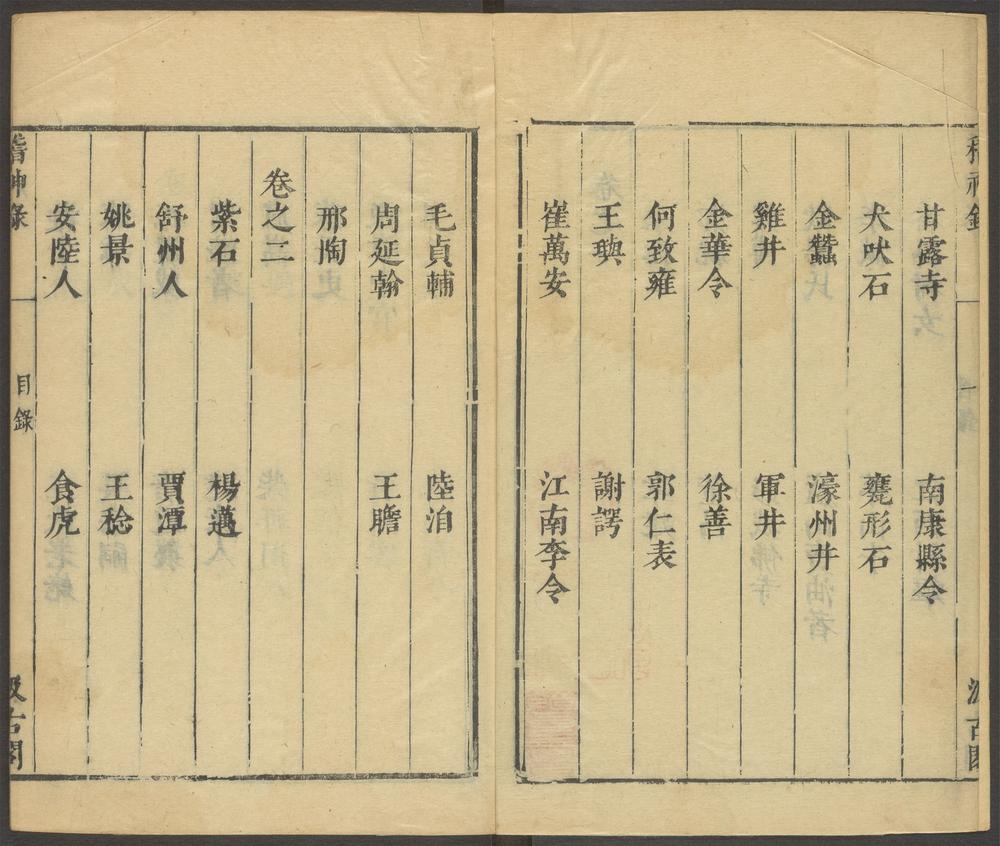 稽神錄
一
汲古閣
甘露寺　南康縣令
犬吠石　甕形石
金蠶　濠州井
雞井　軍井
金華令　徐善
何致雍　郭仁表
王璵　謝諤
崔萬安　江南李令
毛貞輔　陸洎
周延翰　王瞻
邢陶
卷之二
紫石　楊邁
舒州人　賈潭
姚景　王稔
安陸人　食虎
稽神錄
目錄
汲古閣